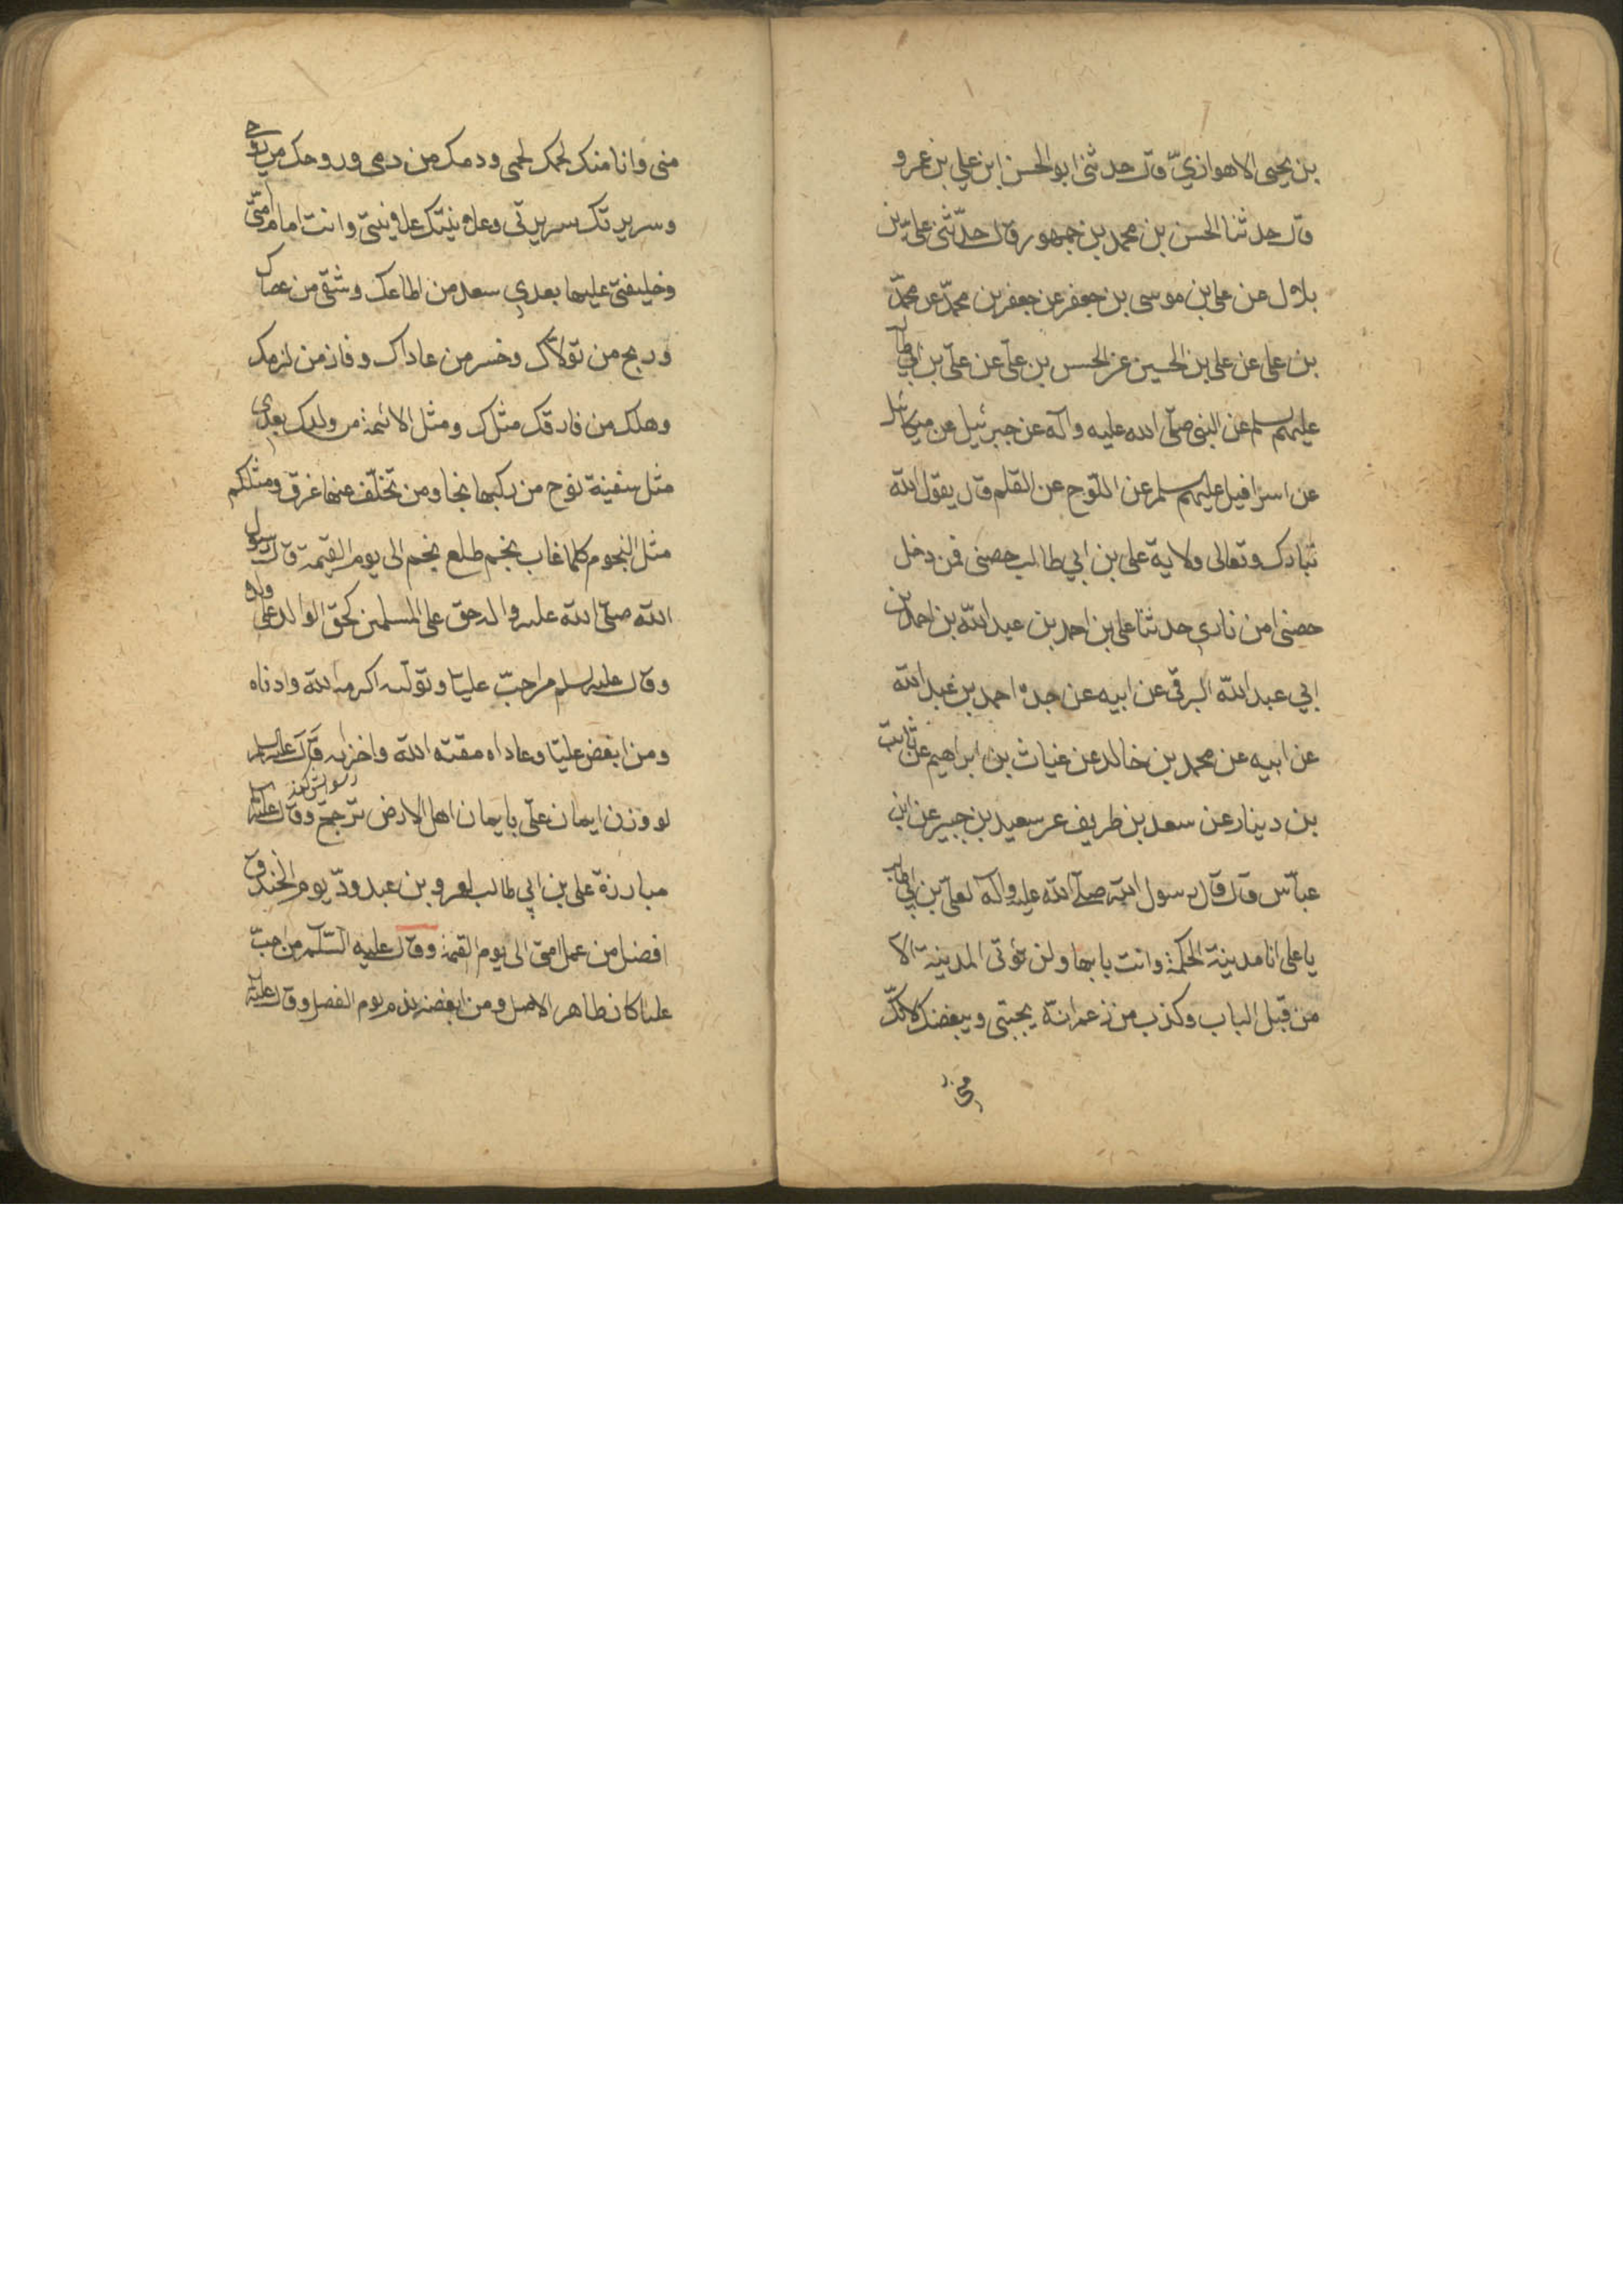 بن يحيى الاهوازيّ قال حدثنى ابو الحسن ابن علي بن عمرو
قال حدثنا الحسن بن محمد بن جمهور قال حدّثنى على بن
بلال عن على بن موسى بن جعفر عن جعفر بن محمدّ عن محمدّ
بن على عن على بن الحسين عن الحسن بن علىّ عن علىّ بن ابي طالب
عليهم السلم عن النبى صلّى الله عليه وآله عن جبرئيل عن ميكائيل
عن اسرافيل عليهم السلم عن اللّوح عن القلم قال يقول الله
تبارك وتعالى ولاية على بن ابي طالب حصنى فمن دخل
حصنى امن ناري حدثنا على بن احمد بن عبد الله بن احمد بن
ابي عبد الله البرقى عن ابيه عن جده احمد بن عبد الله
عن ابيه عن محمد بن خالد عن غياث بن ابراهيم عن ثابت
بن دينار عن سعد بن طريف عن سعيد بن جبير عن ابن
عباّس قال قال رسول الله صلّى الله عليه وآله لعلىّ بن ابي طالب
يا على انا مدينة الحكمة وانت بابها ولن تؤتى المدينة الا
من قبل الباب وكذب من زعم انه يحبنى ويبغضك لانكّ
منى
منى وانا منك لحمك لحمى ودمك من دمى وروحك من روحى
وسريرتك سريرتى وعلانيتك علانيتى وانت امام امتّى
وخليفتى عليها بعدي سعد من اطاعك وشقى من عصاك
وربح من تولاّك وخسر من عاداك وفاز من لزمك
وهلك من فارقك مثلك ومثل الائمة من ولدك بعدى
مثل سفينة نوح من ركبها نجا ومن تخلّف عنها غرق ومثلكم
مثل النجوم كلما غاب نجم طلع نجم الى يوم القيمة قال رسول
الله صلّى الله عليه واله حق على المسلمين كحقّ الوالد على ولده
وقال عليه السلم من احبّ علياّ وتولّيه اكرمه الله وادناه
ومن ابغض علياّ وعاداه مقته الله واخزاه قال عليه السلم
لو وزن ايمان علىّ بايمان اهل الارض ترجحّ وقال عليه السلم
مبارزة على بن ابي طالب لعمرو بن عبد ودّ يوم الخندق
افضل من عمل امتى الى يوم القيمة وقال عليه السّلم من احبّ
عليا كان طاهر الاصل ومن ابغضه يوم الفصل وقال عليه